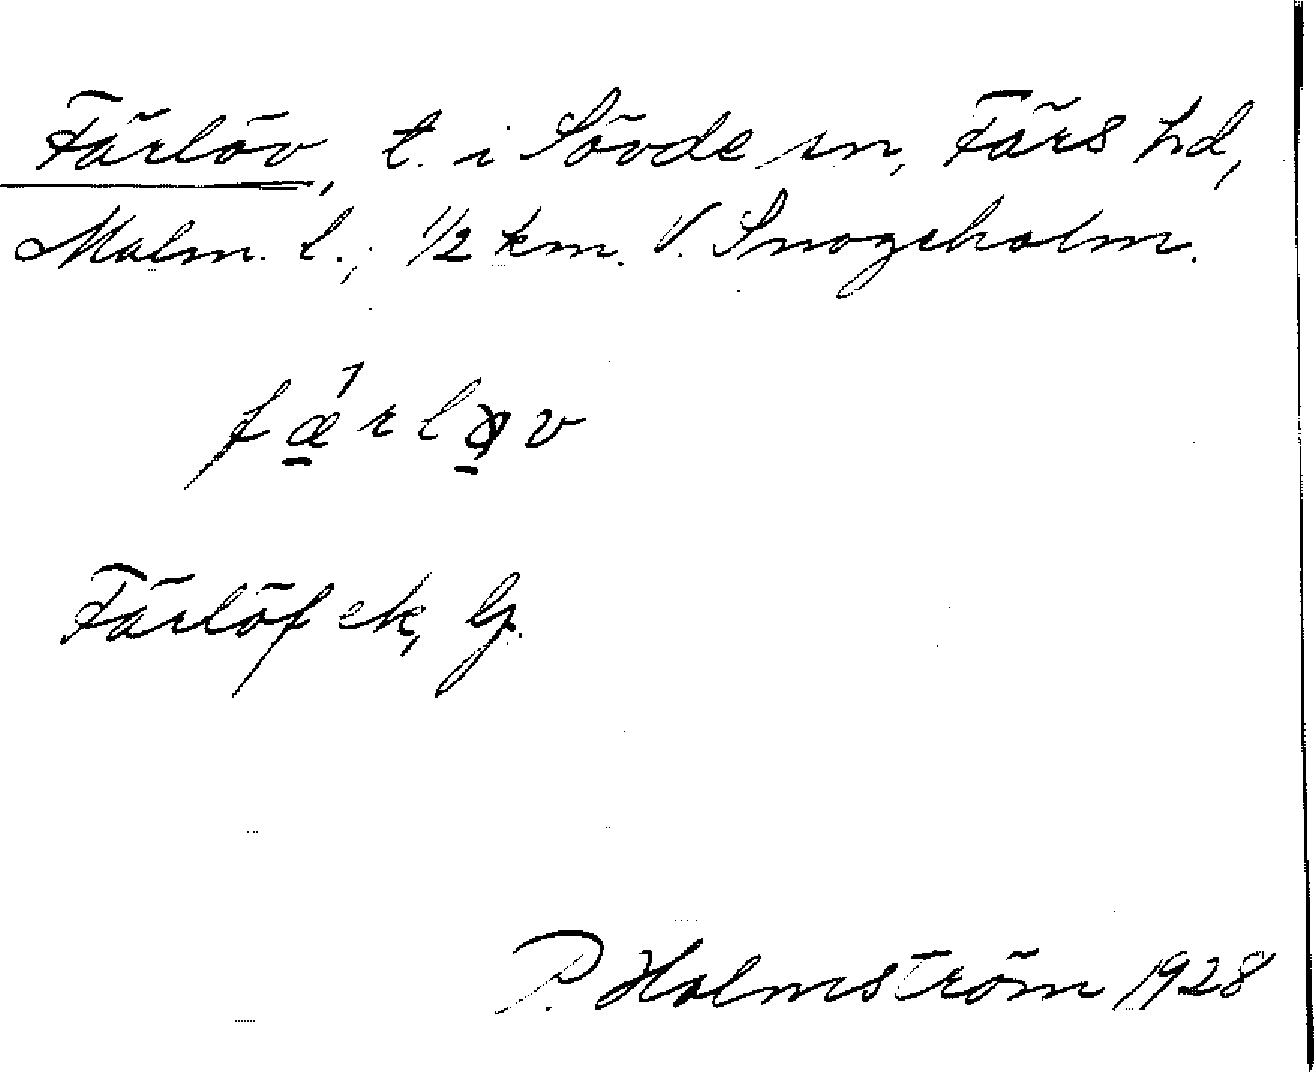 Färlöv, t. i Sövde sn, Färs hd,
Malm. l.; 1/2 km. V. Snogeholm.
fǽrløv
Färlöf ek, G.
P. Holmström 1928